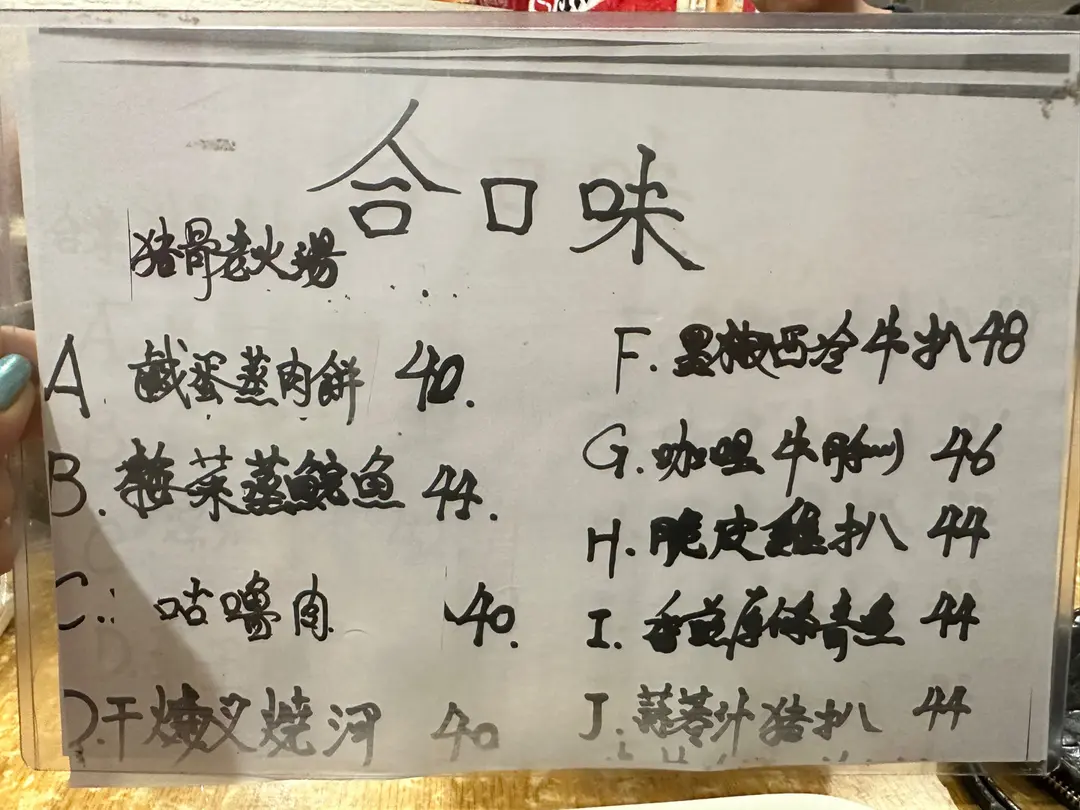 合口味
猪骨老火湯
A. 鹹蛋蒸肉餅 40.
B. 梅菜蒸鯇魚 44.
C: 咕嚕肉 40.
D. 干燒叉燒河 40
F. 墨椒西冷牛扒 48
G. 咖喱牛腩 46
H. 脆皮雞扒 44
I. 香煎厚 魚 44
J. 蒜蓉汁猪扒 44